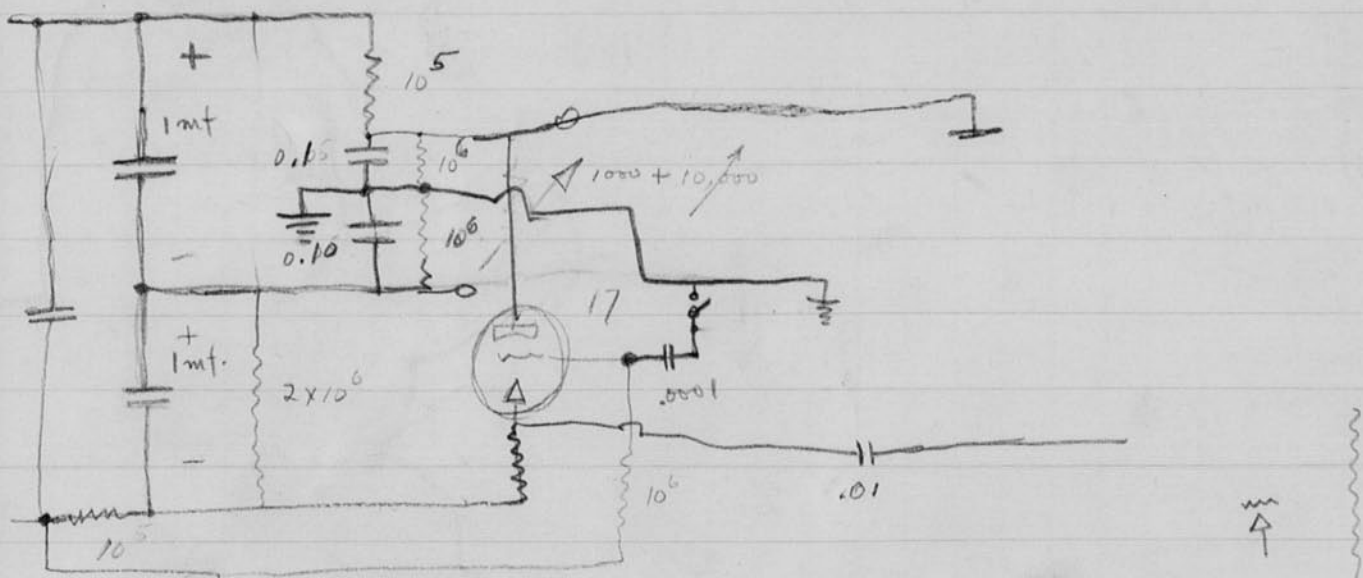 +
10 5
1 mf
0.1
10 6
1000 + 10,000
0.10
10 6
-
17
+
1 mf.
2 x 10 6
.0001
-
10 6
.01
10 5